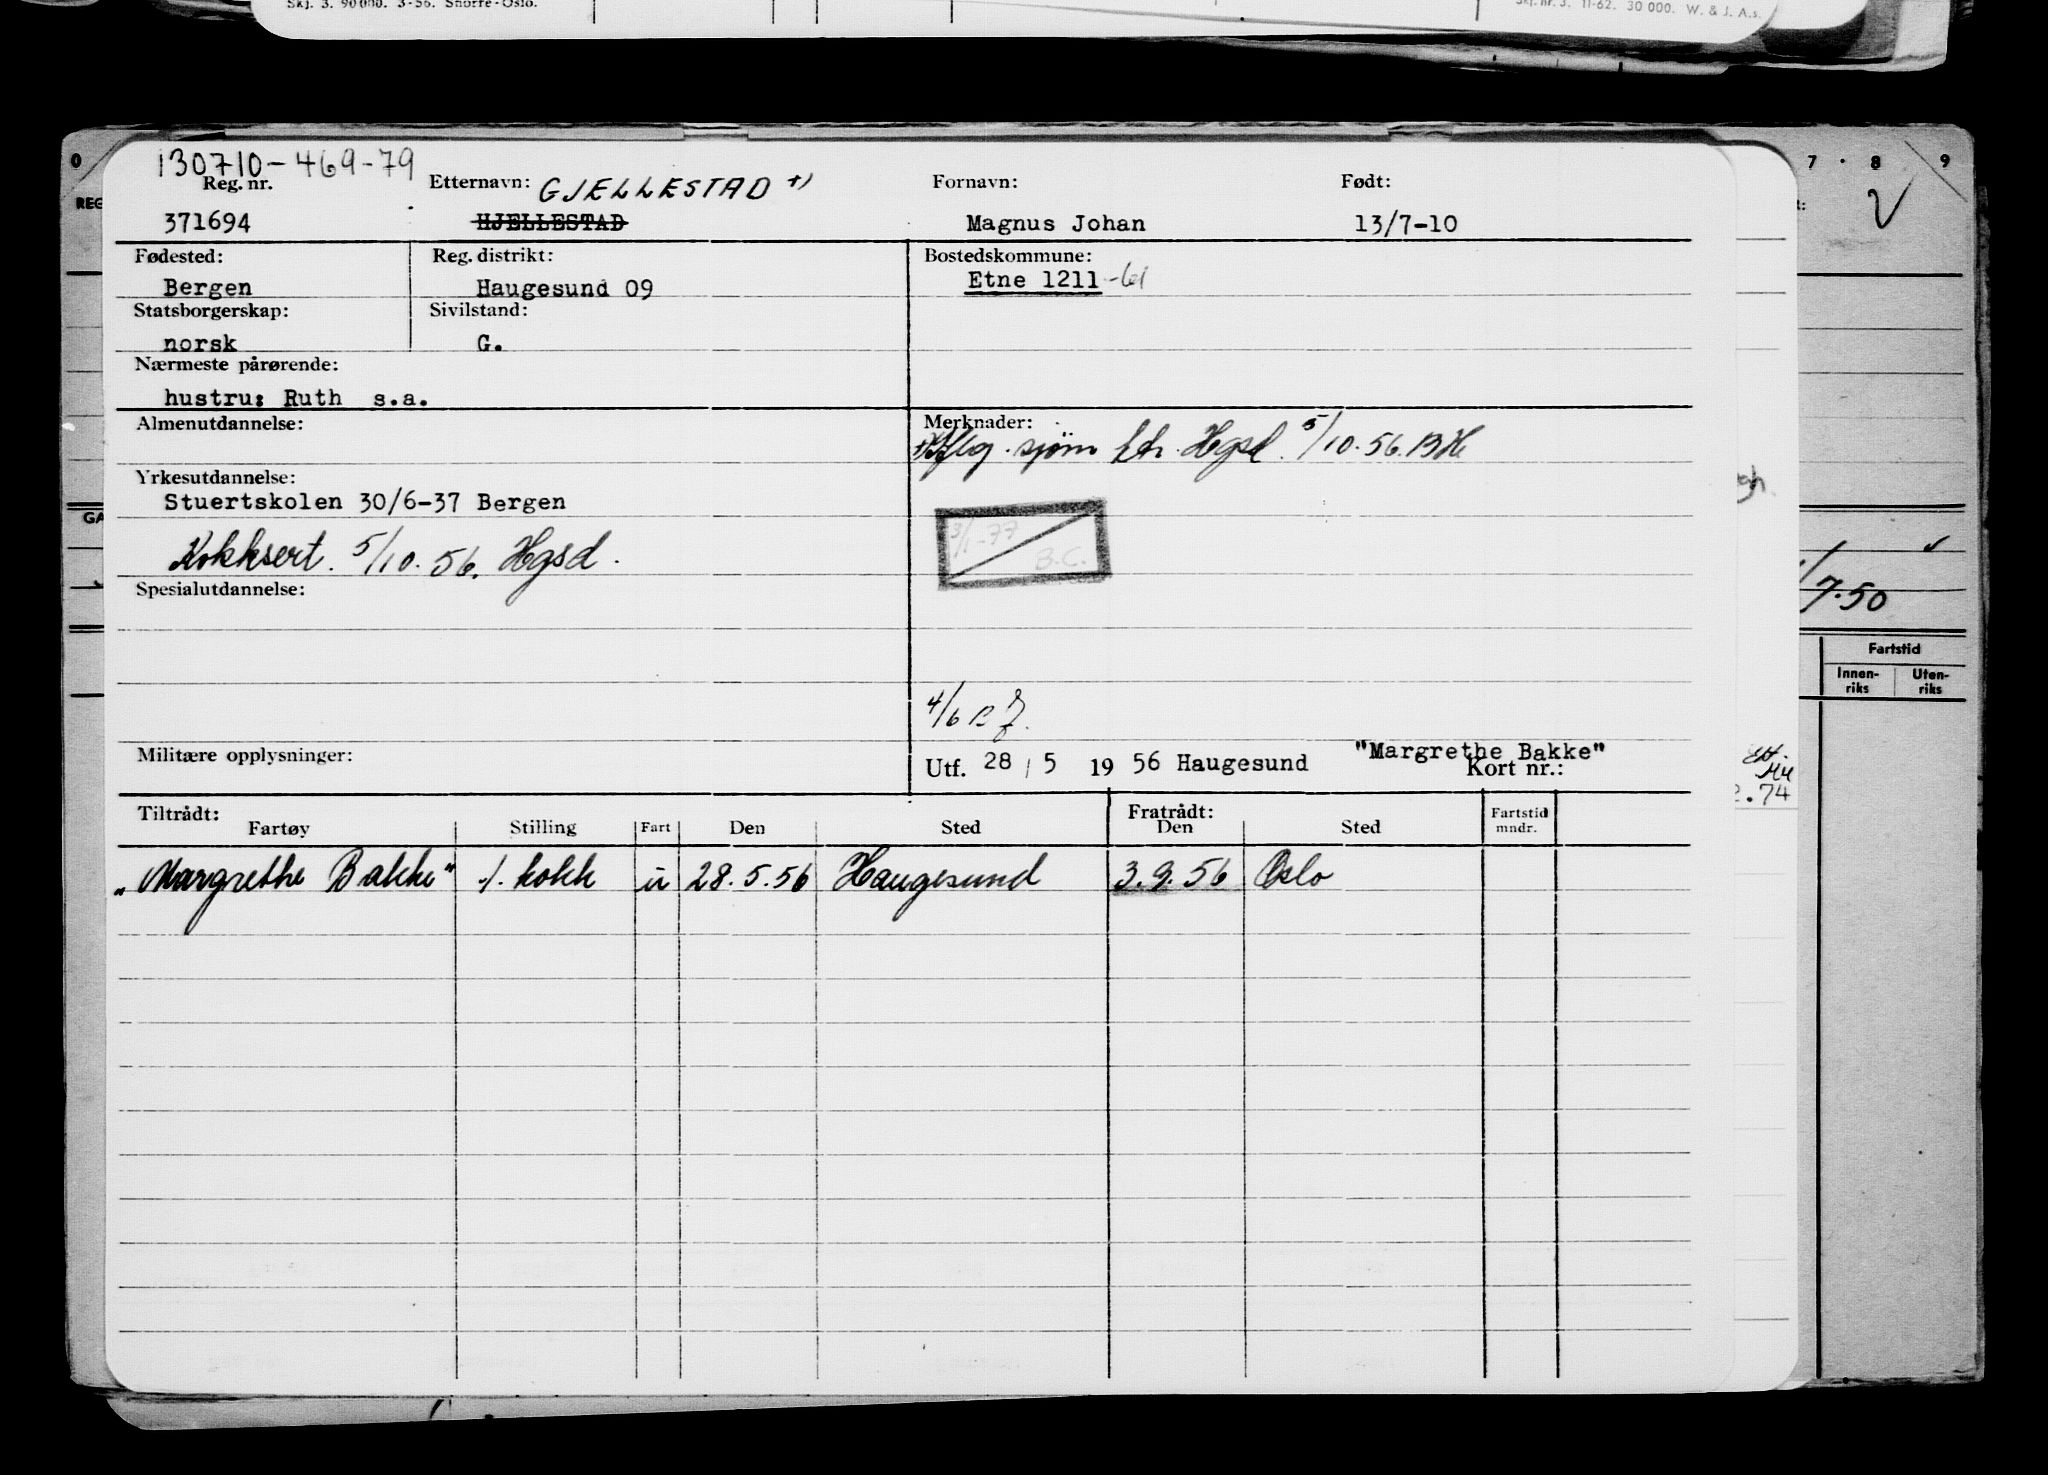 Skj. 3. 90 000. 3-56. Snorre-Oslo.
Skj. nr. 3. 11-62. 30 000. W. & J. A.s.
0
7 · 8 9
REG
130710-469-79
Reg. nr.
371694
Etternavn: GJELLESTAD +)
HJELLESTAD
Fornavn:
Magnus Johan
Født:
13/7-10
Fødested:
Bergen
Reg. distrikt:
Haugesund 09
Bostedskommune:
Etne 1211-61
Statsborgerskap:
norsk
Sivilstand:
G.
Nærmeste pårørende:
hustru: Ruth s.a.
Almenutdannelse:
Merknader:
sjøm Hgsd. 5/10.56. BH
Yrkesutdannelse:
Stuertskolen 30/6-37 Bergen
Kokksert. 5/10.56. Hgsd.
3/1-77
B.C.
Spesialutdannelse:
4/6
Militære opplysninger:
Utf. 28 / 5 19 56 Haugesund
"Margrethe Bakke"
Kort nr.:
Tiltrådt:
Fartøy
Stilling
Fart
Den
Sted
Fratrådt:
Den
Sted
Fartstid
mndr.
"Margrethe Bakke" kokk u 28.5.56 Haugesund 3.9.56 Oslo
GA
7.50
Fartstid
Innen-
riks
Uten-
riks
.74